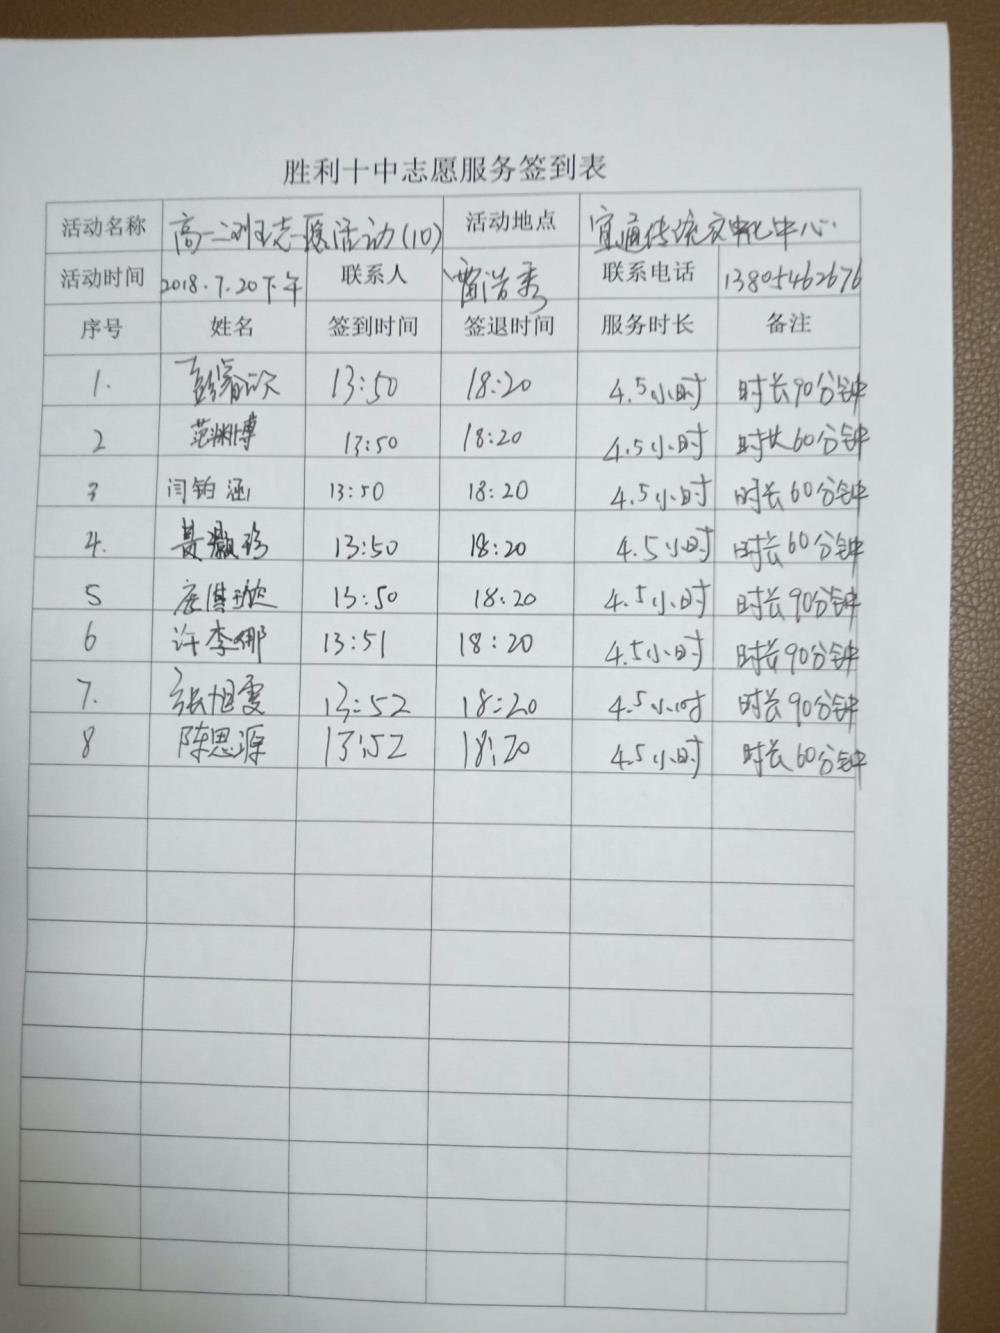 胜利十中志愿服务签到表
活动名称 高一二班志愿活动(10) 活动地点 宜通传统文化中心
活动时间 2018.7.20下午 联系人 雷浩秀 联系电话 13805462676
序号 姓名 签到时间 签退时间 服务时长 备注
1. 13:50 18:20 4.5小时 时长90分钟
2 范渊博 13:50 18:20 4.5小时 时长60分钟
3 闫铂涵 13:50 18:20 4.5小时 时长60分钟
4. 13:50 18:20 4.5小时 时长60分钟
5 13:50 18:20 4.5小时 时长90分钟
6 许李娜 13:51 18:20 4.5小时 时长90分钟
7. 张旭雯 13:52 18:20 4.5小时 时长90分钟
8 陈思源 13:52 18:20 4.5小时 时长60分钟